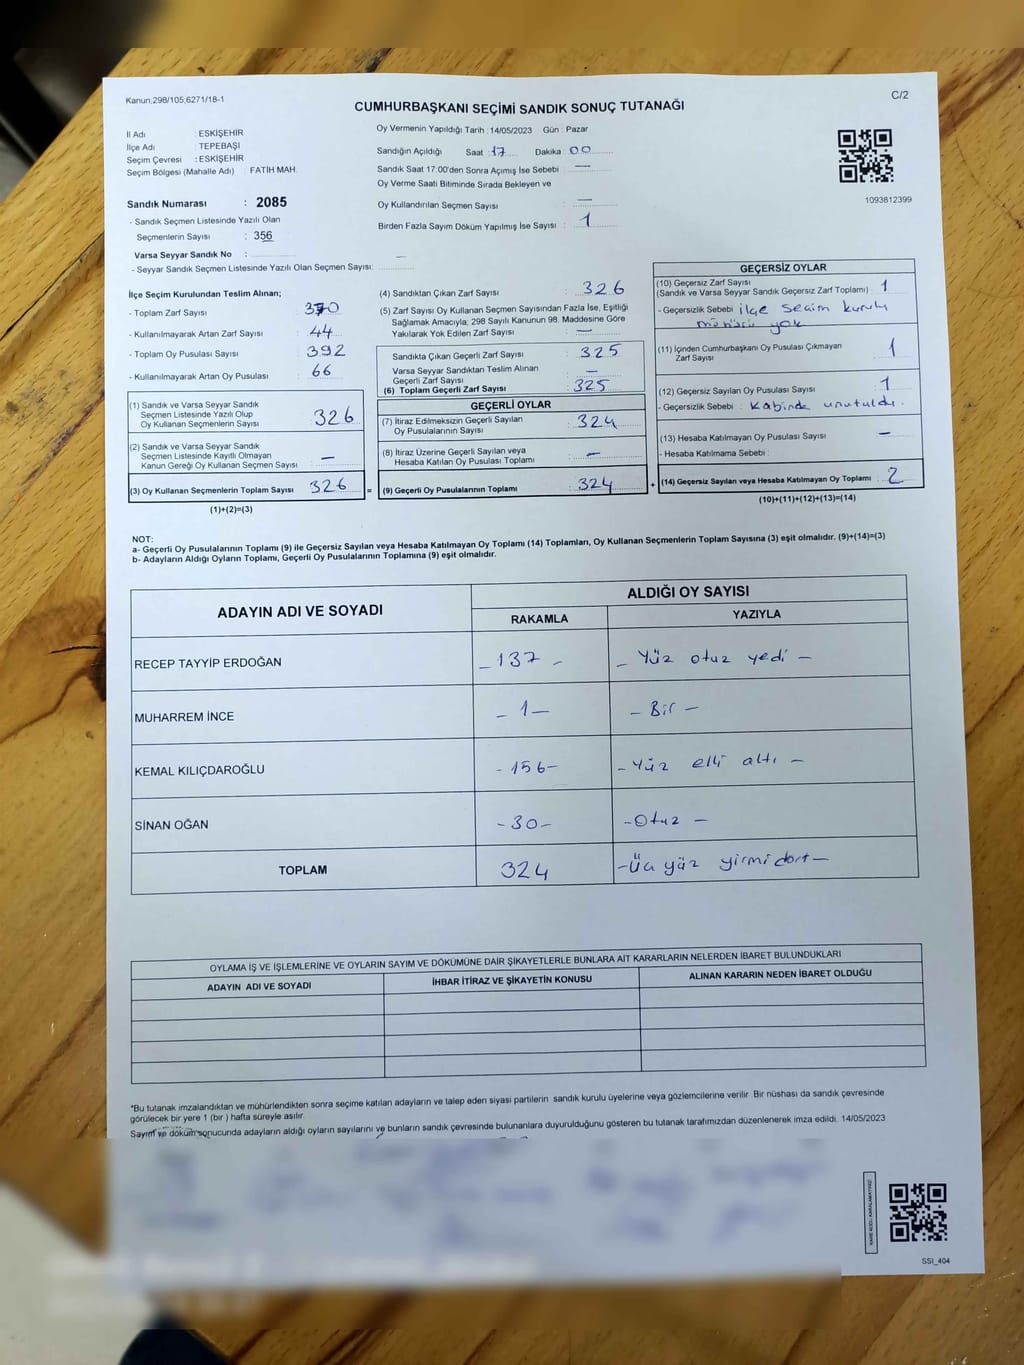 Kanun;298/105;6271/18-1
C/2
CUMHURBAŞKANI SEÇİMİ SANDIK SONUÇ TUTANAĞI
İl Adı : ESKİŞEHİR
İlçe Adı : TEPEBAŞI
Seçim Çevresi : ESKİŞEHİR
Seçim Bölgesi (Mahalle Adı) : FATİH MAH.
Sandık Numarası : 2085
- Sandık Seçmen Listesinde Yazılı Olan
Seçmenlerin Sayısı : 356
Varsa Seyyar Sandık No : —
- Seyyar Sandık Seçmen Listesinde Yazılı Olan Seçmen Sayısı:
Oy Vermenin Yapıldığı Tarih : 14/05/2023 Gün : Pazar
Sandığın Açıldığı Saat : 17 Dakika 00
Sandık Saat 17:00'den Sonra Açımış İse Sebebi : —
Oy Verme Saati Bitiminde Sırada Bekleyen ve
Oy Kullandırılan Seçmen Sayısı : —
Birden Fazla Sayım Döküm Yapılmış İse Sayısı : 1
1093812399
İlçe Seçim Kurulundan Teslim Alınan;
- Toplam Zarf Sayısı : 370
- Kullanılmayarak Artan Zarf Sayısı : 44
- Toplam Oy Pusulası Sayısı : 392
- Kullanılmayarak Artan Oy Pusulası : 66
(1) Sandık ve Varsa Seyyar Sandık
Seçmen Listesinde Yazılı Olup
Oy Kullanan Seçmenlerin Sayısı : 326
(2) Sandık ve Varsa Seyyar Sandık
Seçmen Listesinde Kayıtlı Olmayan
Kanun Gereği Oy Kullanan Seçmen Sayısı : —
(3) Oy Kullanan Seçmenlerin Toplam Sayısı : 326
(1)+(2)=(3)
=
(4) Sandıktan Çıkan Zarf Sayısı : 326
(5) Zarf Sayısı Oy Kullanan Seçmen Sayısından Fazla İse, Eşitliği
Sağlamak Amacıyla; 298 Sayılı Kanunun 98. Maddesine Göre
Yakılarak Yok Edilen Zarf Sayısı : —
Sandıkta Çıkan Geçerli Zarf Sayısı : 325
Varsa Seyyar Sandıktan Teslim Alınan
Geçerli Zarf Sayısı : —
(6) Toplam Geçerli Zarf Sayısı : 325
GEÇERLİ OYLAR
(7) İtiraz Edilmeksizin Geçerli Sayılan
Oy Pusulalarının Sayısı : 324
(8) İtiraz Üzerine Geçerli Sayılan veya
Hesaba Katılan Oy Pusulası Toplamı : —
(9) Geçerli Oy Pusulalarının Toplamı : 324
+
GEÇERSİZ OYLAR
(10) Geçersiz Zarf Sayısı
(Sandık ve Varsa Seyyar Sandık Geçersiz Zarf Toplamı) : 1
- Geçersizlik Sebebi : ilçe seçim kurulu
mühürü yok
(11) İçinden Cumhurbaşkanı Oy Pusulası Çıkmayan
Zarf Sayısı : 1
(12) Geçersiz Sayılan Oy Pusulası Sayısı : 1
- Geçersizlik Sebebi : Kabinde unutuldu.
(13) Hesaba Katılmayan Oy Pusulası Sayısı : —
- Hesaba Katılmama Sebebi :
(14) Geçersiz Sayılan veya Hesaba Katılmayan Oy Toplamı : 2
(10)+(11)+(12)+(13)=(14)
NOT:
a- Geçerli Oy Pusulalarının Toplamı (9) ile Geçersiz Sayılan veya Hesaba Katılmayan Oy Toplamı (14) Toplamları, Oy Kullanan Seçmenlerin Toplam Sayısına (3) eşit olmalıdır. (9)+(14)=(3)
b- Adayların Aldığı Oyların Toplamı, Geçerli Oy Pusulalarının Toplamına (9) eşit olmalıdır.
ADAYIN ADI VE SOYADI
ALDIĞI OY SAYISI
RAKAMLA YAZIYLA
RECEP TAYYİP ERDOĞAN - 137 - - Yüz otuz yedi -
MUHARREM İNCE - 1 - - Bir -
KEMAL KILIÇDAROĞLU - 156 - - Yüz elli altı -
SİNAN OĞAN - 30 - - Otuz -
TOPLAM 324 - Üç yüz yirmi dört -
OYLAMA İŞ VE İŞLEMLERİNE VE OYLARIN SAYIM VE DÖKÜMÜNE DAİR ŞİKAYETLERLE BUNLARA AİT KARARLARIN NELERDEN İBARET BULUNDUKLARI
ADAYIN ADI VE SOYADI İHBAR İTİRAZ VE ŞİKAYETİN KONUSU ALINAN KARARIN NEDEN İBARET OLDUĞU
*Bu tutanak imzalandıktan ve mühürlendikten sonra seçime katılan adayların ve talep eden siyasi partilerin sandık kurulu üyelerine veya gözlemcilerine verilir. Bir nüshası da sandık çevresinde
görülecek bir yere 1 (bir ) hafta süreyle asılır.
Sayım ve döküm sonucunda adayların aldığı oyların sayılarını ve bunların sandık çevresinde bulunanlara duyurulduğunu gösteren bu tutanak tarafımızdan düzenlenerek imza edildi. 14/05/2023
KARE KODU KARALAMAYINIZ!
SSI_404